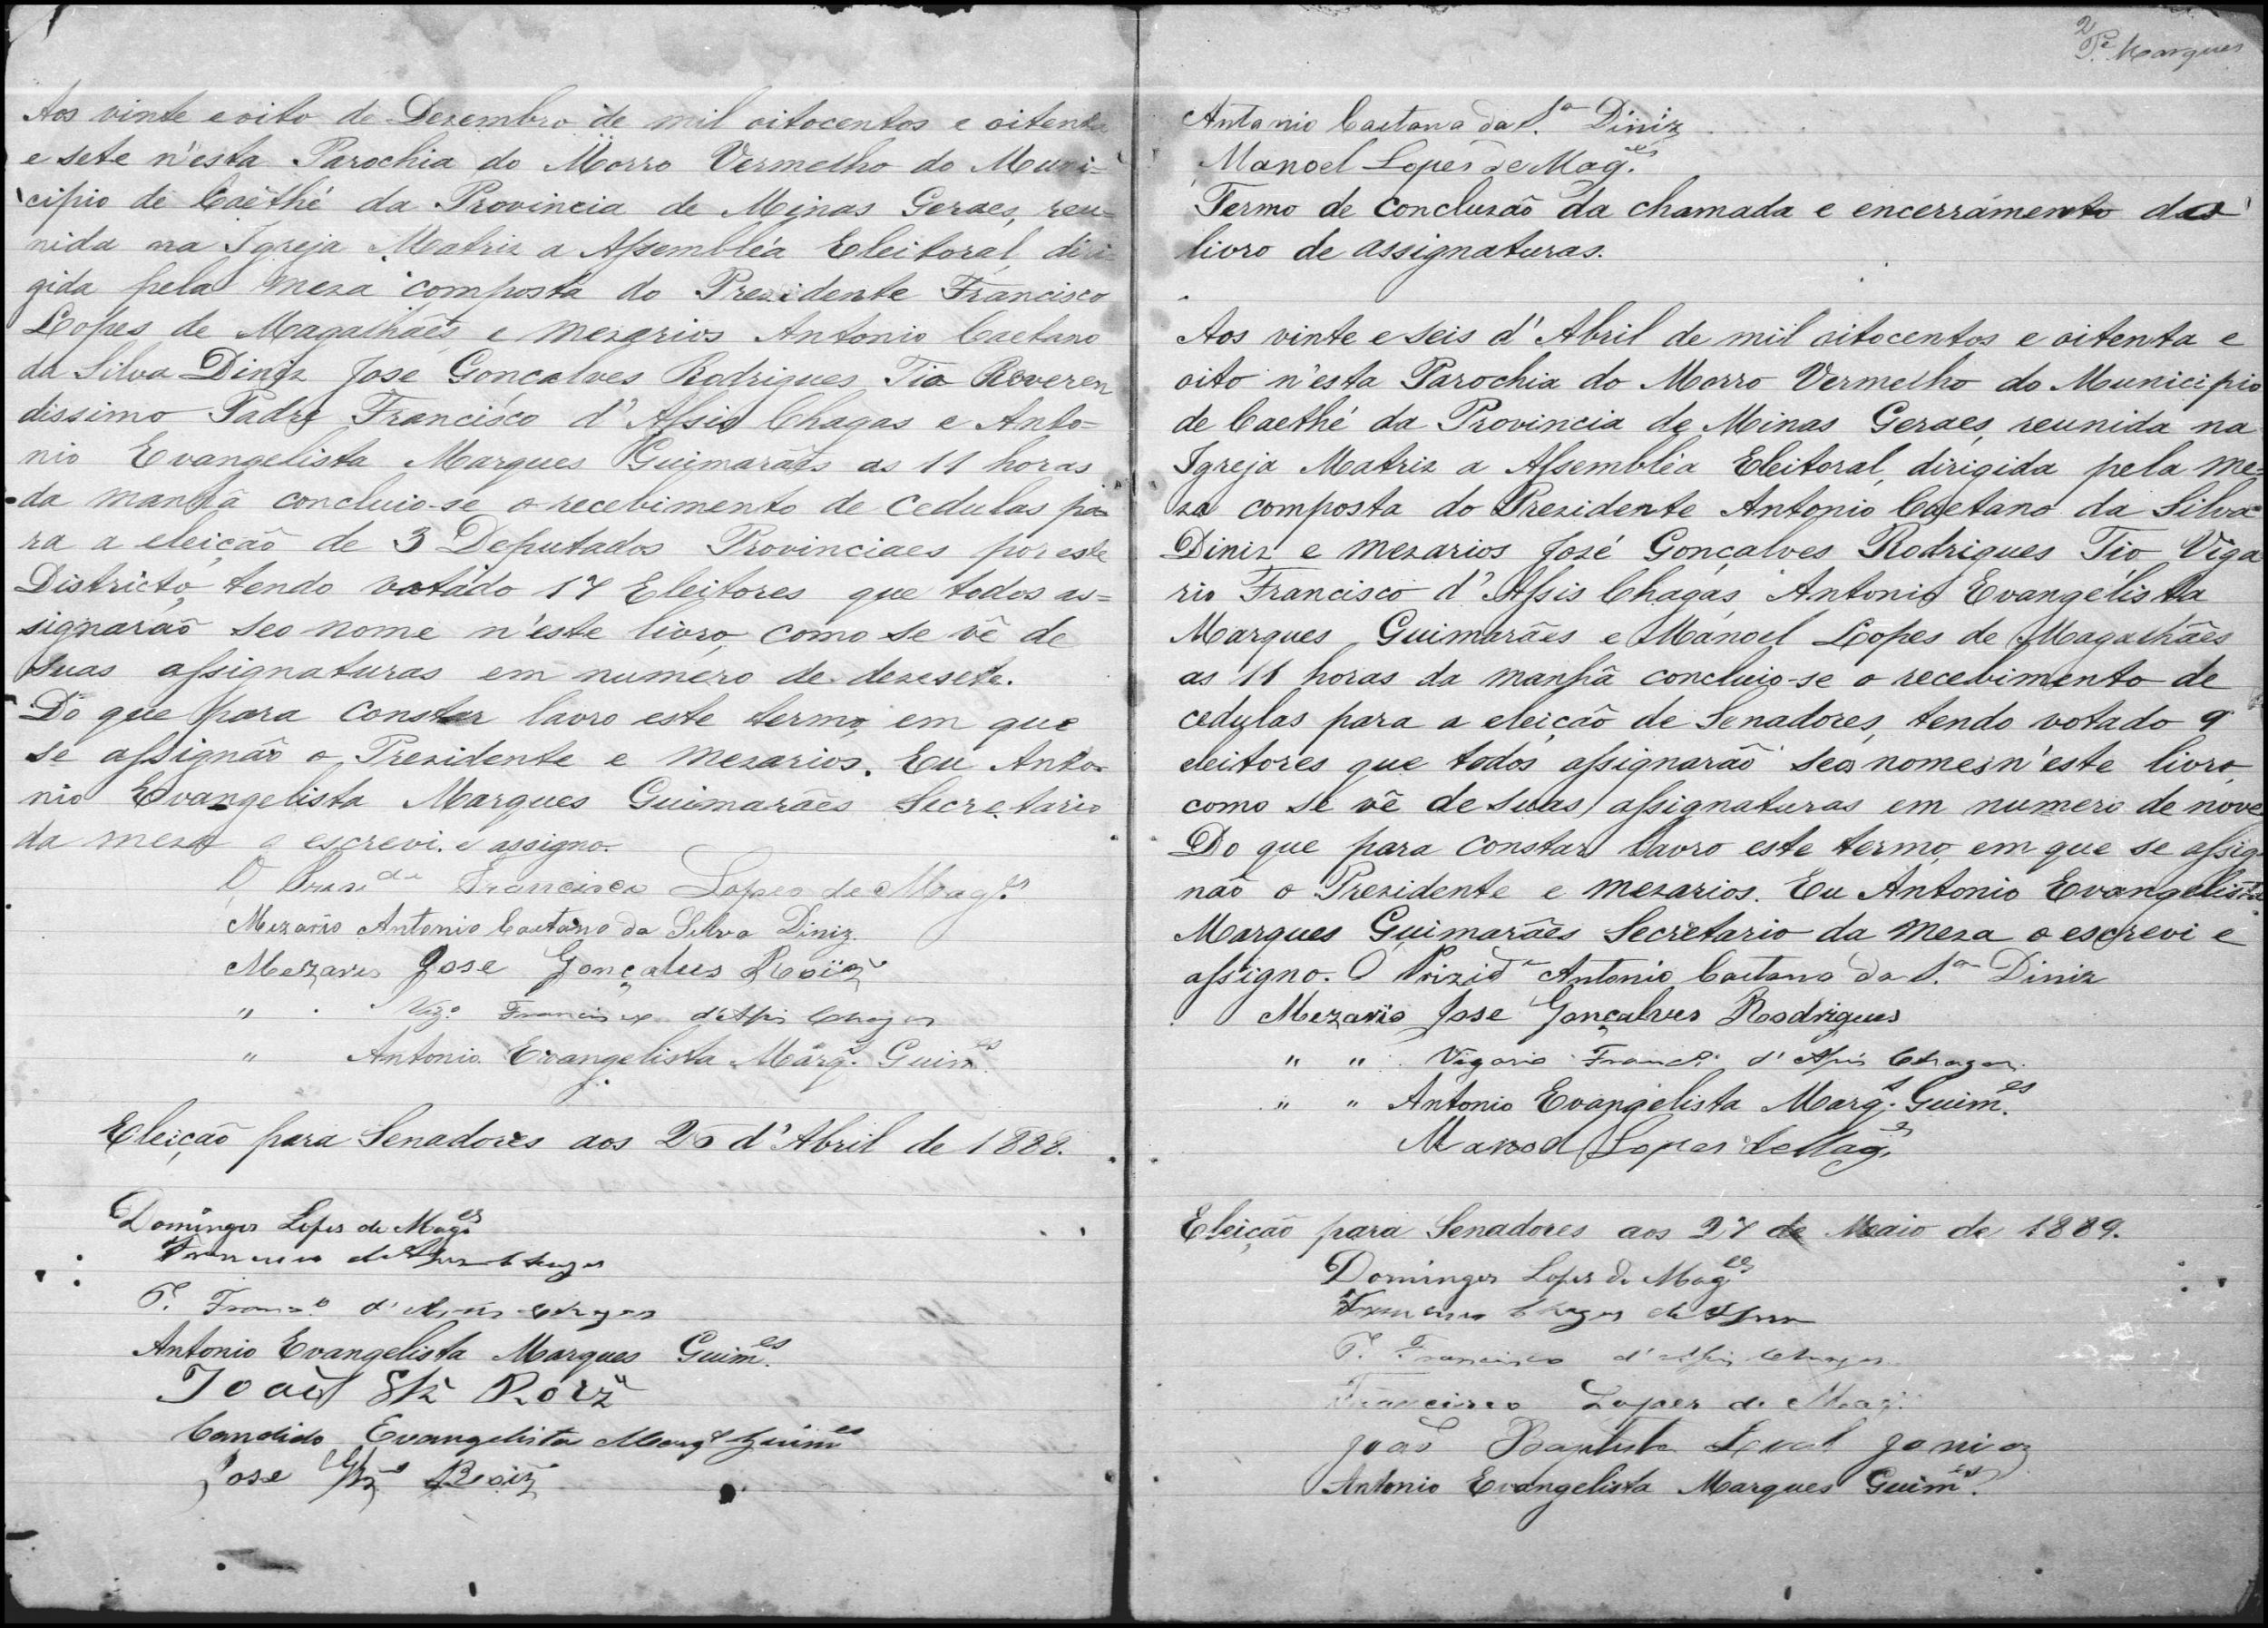 Aos vinte e oito de Dezembro de mil oitocentos e oitenta
e sete n'esta Parochia do Morro Vermelho do Muni=
cipio de Caethé da Provincia de Minas Geraes, reu=
nida na Igreja Matriz a Assembléa Eleitoral, diri=
gida pela meza composta do Prezidente Francisco
Lopes de Magalhães e mezarios Antonio Caetano
da Silva Diniz José Gonçalves Rodrigues Tio Reveren
dissimo Padre Francisco d'Assis Chagas e Anto=
nio Evangelista Marques Guimarães as 11 horas
da manhã concluio-se o recebimento de cedulas pa=
ra a eleição de 3 Deputados Provinciaes por este
Districto, tendo votado 17 Eleitores que todos as=
signarão seo nome n'este livro, como se vê de
suas assignaturas em numero de dezesete.
Do que para constar lavro este termo, em que
se assignão o Prezidente e mezarios. Eu Anto=
nio Evangelista Marques Guimarães Secretario
da meza o escrevi e assigno.
O Prezide Francisco Lopes de Mages
Mezario Antonio Caetano da Silva Diniz
Mezario Jose Gonçalves Roiz
" Vigo Francisco d'Assis Chagas
" Antonio Evangelista Marqs Guimes
Eleição para Senadores aos 26 d'Abril de 1888.
Domingos Lopes de Mages
Francisco de Chagas
P. Franco d'Assis Chagas
Antonio Evangelista Marques Guimes
João Roiz
Candido Evangelista Marqs Guimes
Jose Roiz
2
Pe Marques
Antonio Caetano da Sa Diniz
Manoel Lopes de Mages
Termo de concluzão da chamada e encerramento das
livro de assignaturas.
Aos vinte e seis d'Abril de mil oitocentos e oitenta e
oito n'esta Parochia do Morro Vermelho do Municipio
de Caethé da Provincia de Minas Geraes, reunida na
Igreja Matriz a Assembléa Eleitoral, dirigida pela me=
za composta do Prezidente Antonio Caetano da Silva
Diniz e mezarios José Gonçalves Rodrigues Tio Viga
rio Francisco d'Assis Chagas Antonio Evangelista
Marques Guimarães e Manoel Lopes de Magalhães
as 11 horas da manhã concluio-se o recebimento de
cedulas para a eleição de Senadores, tendo votado 9
eleitores que todos assignarão seos nomes n'este livro,
como se vê de suas assignaturas em numero de nove
Do que para constar lavro este termo, em que se assig
não o Prezidente e mezarios. Eu Antonio Evangelista
Marques Guimarães Secretario da meza o escrevi e
assigno. O Prizide Antonio Caetano da Sa Diniz
Mezario Jose Gonçalves Rodrigues
" " Vigario Franco d'Assis Chagas
" " Antonio Evangelista Marqs Guimes
Manoel Lopes de Mages
Eleição para Senadores aos 27 de Maio de 1889.
Domingos Lopes de Mages
Francisco Chagas de
P. Francisco d'Assis Chagas
Francisco Lopes de Mages
João Baptista
Antonio Evangelista Marques Guimes